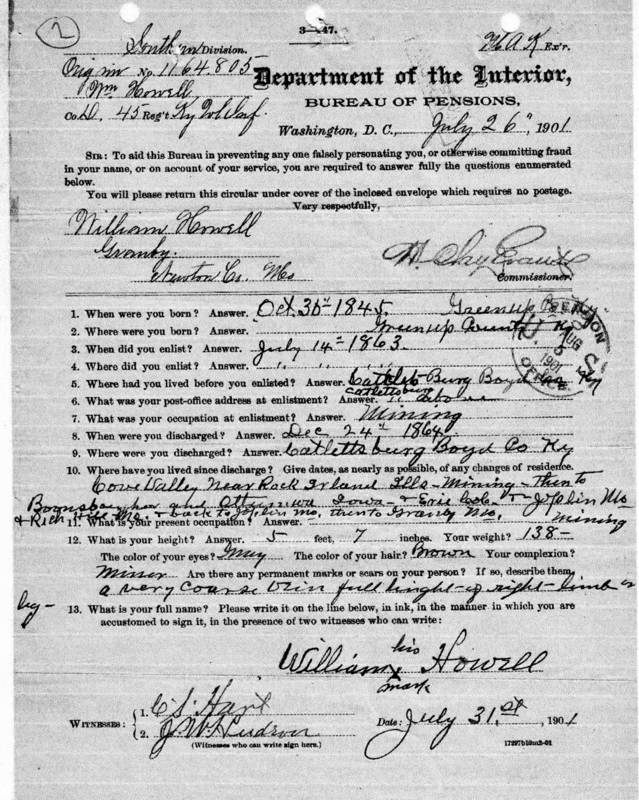 2
3—447.
Southern Division.
H A K Ex'r.
Orig inv No. 1164805
Wm Howell
Department of the Interior,
Co. D. 45 Reg't Ky Vol Inf.
BUREAU OF PENSIONS,
Washington, D. C., July 26", 1901.
SIR: To aid this Bureau in preventing any one falsely personating you, or otherwise committing fraud
in your name, or on account of your service, you are required to answer fully the questions enumerated
below.
You will please return this circular under cover of the inclosed envelope which requires no postage.
Very respectfully,
William Howell
Granby.
Newton Co. Mo
Commissioner.
1. When were you born? Answer. Oct. 3d 1845. Greenup
2. Where were you born? Answer. Greenup County Ky
3. When did you enlist? Answer. July 14th 1863.
4. Where did you enlist? Answer. " " "
5. Where had you lived before you enlisted? Answer. Cattletsburg Boyd Ky
Catlettsburg
6. What was your post-office address at enlistment? Answer. " above
7. What was your occupation at enlistment? Answer. Mining
8. When were you discharged? Answer. Dec 24th 1864
9. Where were you discharged? Answer. Catlettsburg Boyd Co. Ky
10. Where have you lived since discharge? Give dates, as nearly as possible, of any changes of residence.
Cove Valley Near Rock Island Ills - Mining - then to
and Ottumwa Iowa - & Erie & Joplin Mo
& Rich & back to Joplin Mo, then to Granby Mo.
11. What is your present occupation? Answer. Mining
12. What is your height? Answer. 5 feet, 7 inches. Your weight? 138-
The color of your eyes? Grey The color of your hair? Brown Your complexion?
Miner Are there any permanent marks or scars on your person? If so, describe them
a very coarse vein full hinght of right limb or
leg-
13. What is your full name? Please write it on the line below, in ink, in the manner in which you are
accustomed to sign it, in the presence of two witnesses who can write:
his
William x Howell
mark
WITNESSES: 1. C S Hart
2. J. W.
(Witnesses who can write sign here.)
Date: July 31, st, 1901
U. S. PENSION OFFICE
AUG 5 1901